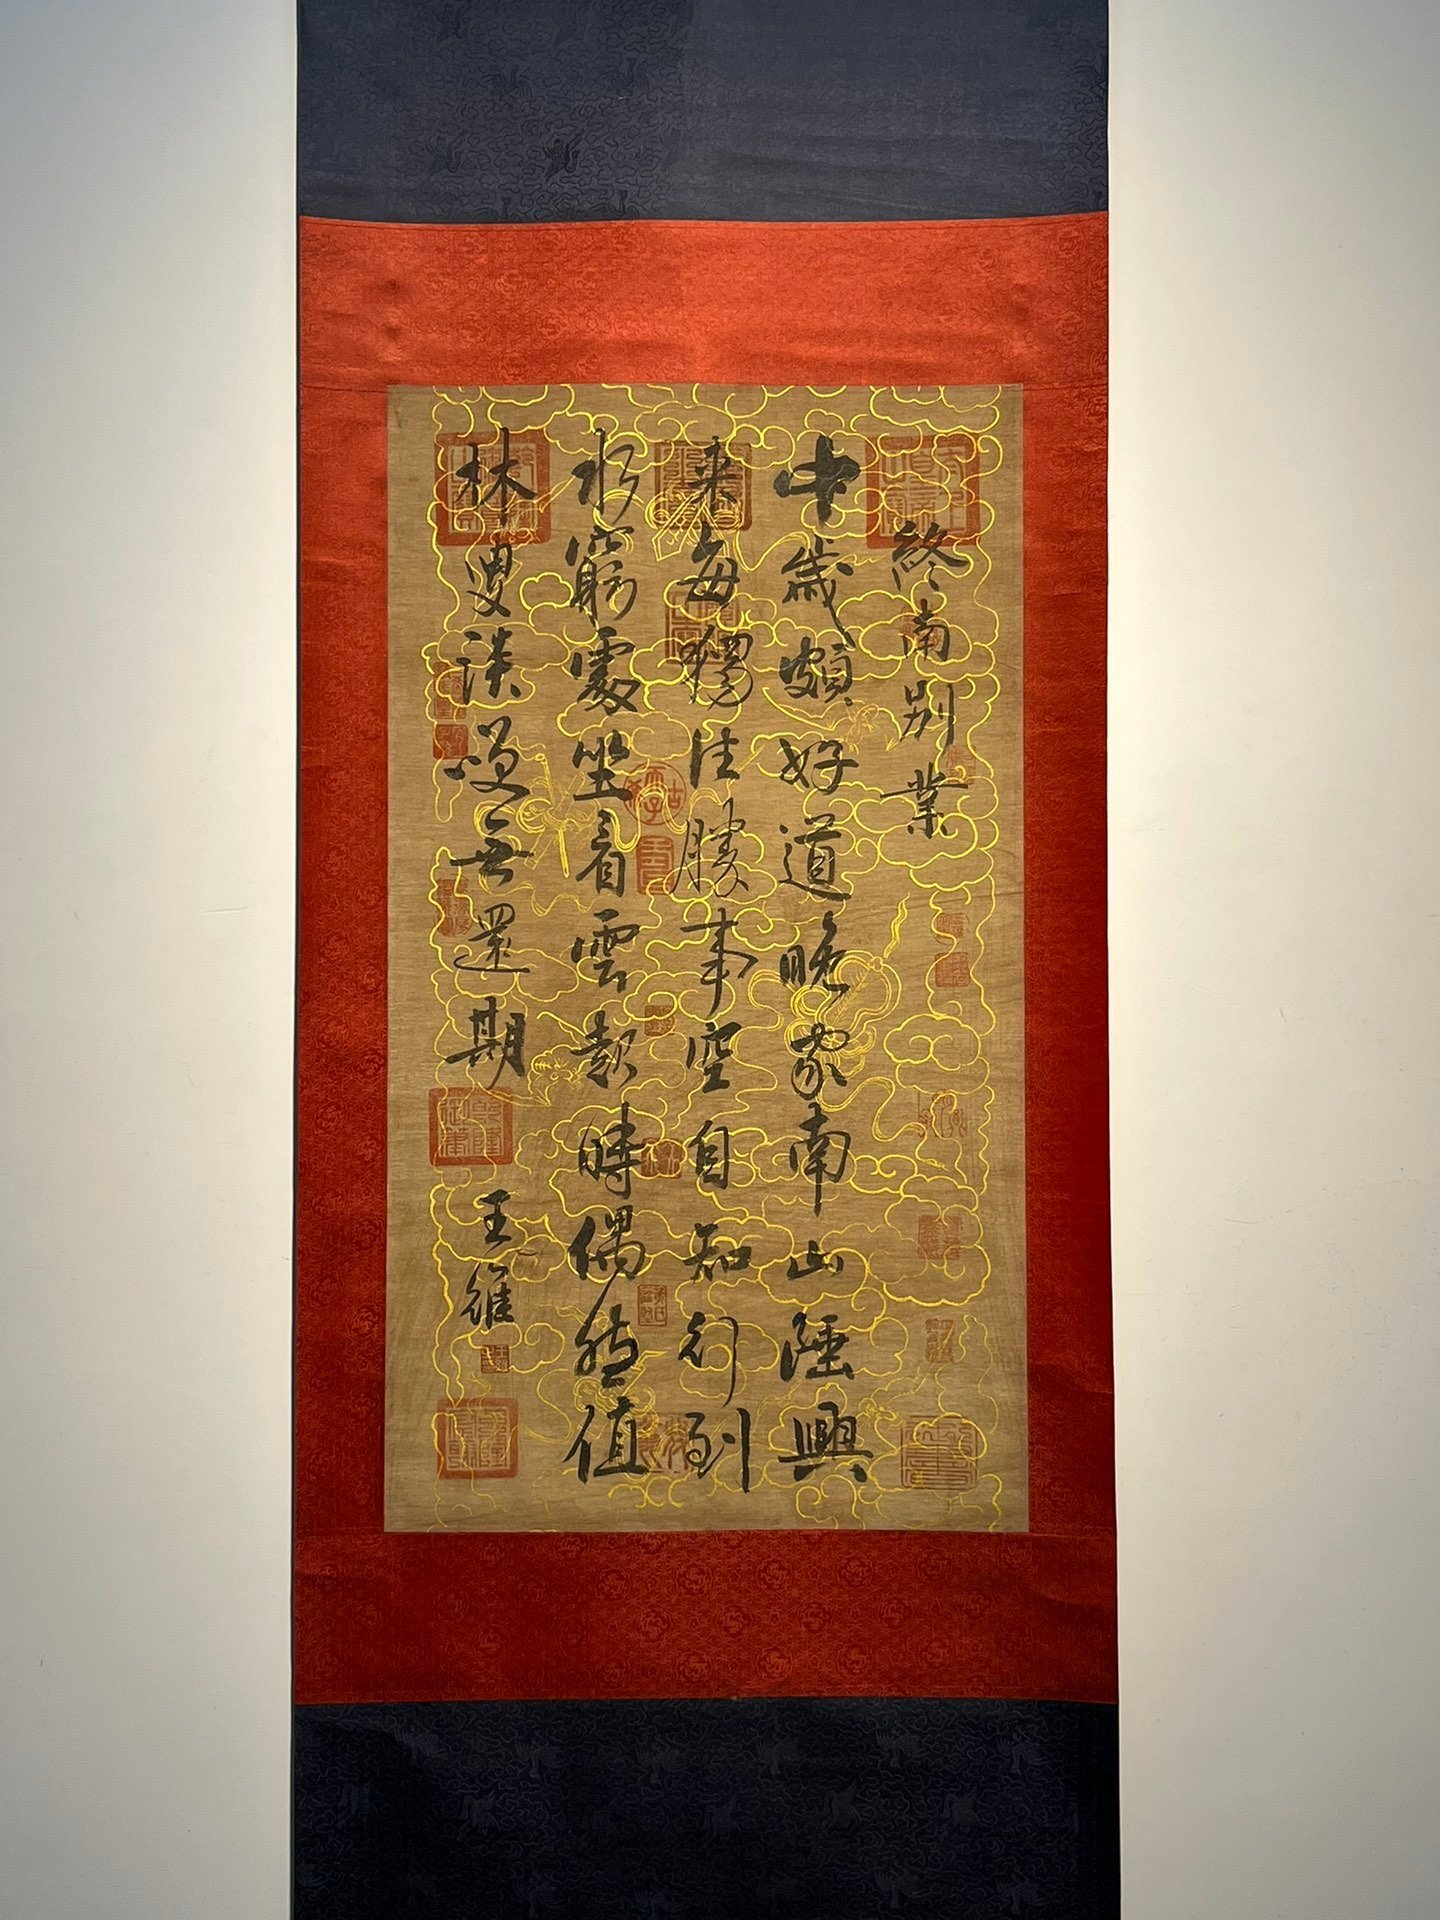 終南別業
中歲頗好道晚家南山陲興
来每獨往勝事空自知行到
水窮處坐看雲起時偶然值
林叟談咲無還期
王維